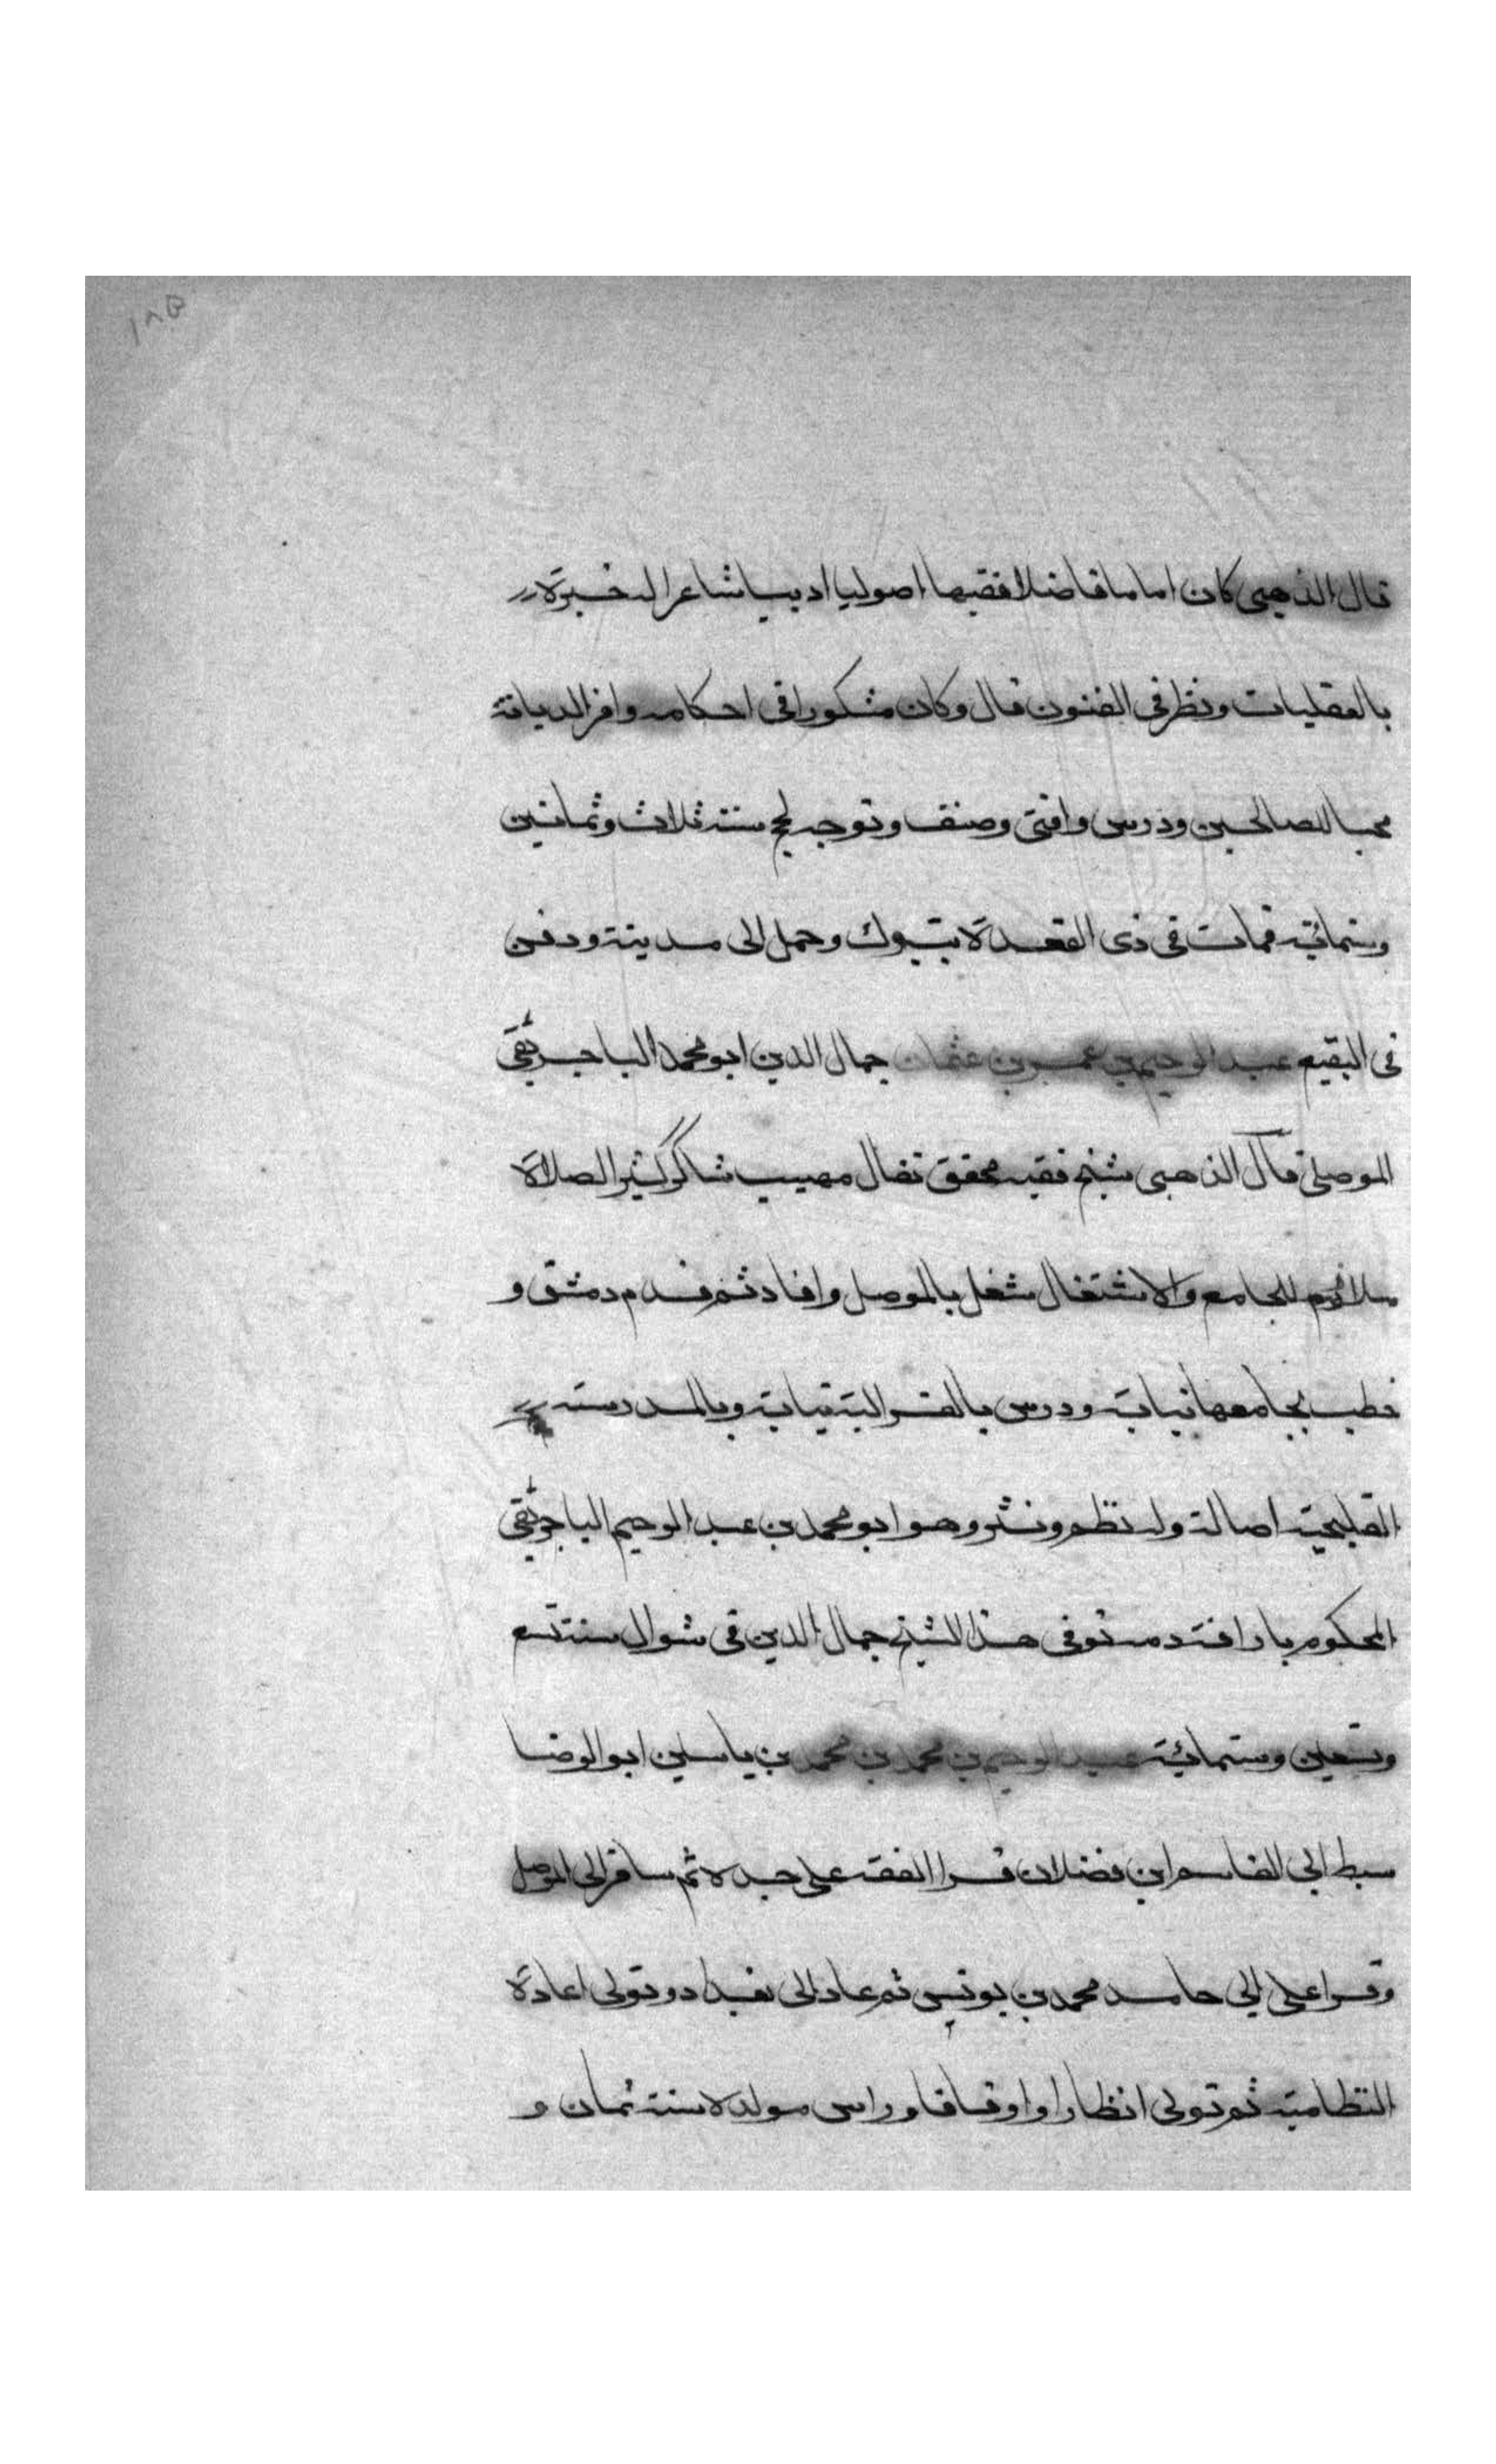 قال الذهبى كان اماما فاضلا فقيها اصوليا اديبا شاعرا له خبرة
بالعقليات ونظر فى الفنون قال وكان مشكورا فى احكامه وافر الديانة
محبا للصالحين ودرس وافتى وصنف وتوجه لحج سنة ثلاث وثمانين
وستمائة فمات فى ذى القعدة بتبوك وحمل الى مدينة ودفن
فى البقيع عبد الرحيم بن عمر بن عثمان جمال الدين ابو محمد الباجربقى
الموصلى قال الذهبى شيخ فقيه محقق نقال مهيب شاكر كثير الصلاة
ملازم للجامع والاشتغال شغل بالموصل وافاد ثم قدم دمشق و
خطب بجامعها نيابة ودرس بالغزالية نيابة وبالمدرسة
القليجية اصالة وله نظم ونثر وهو ابو محمد بن عبد الرحيم الباجربقى
المحكوم باراقة دمه توفى هذا الشيخ جمال الدين فى شوال سنة تسع
وتسعين وستمائة عبد الرحيم بن محمد بن محمد بن ياسين ابو الرضا
سبط ابى القاسم ابن فضلان قرا الفقه على جده ثم سافر الى الموصل
وقرا على ابى حامد محمد بن يونس ثم عاد الى بغداد وتولى اعادة
النظامية ثم تولى انظارا واوقافا وراس مولده سنة ثمان و